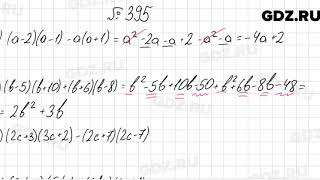 GDZ.RU
№ 395
) (a-2)(a-1) - a(a+1) = a² - 2a - a + 2 - a² - a = -4a + 2
) (b-5)(b+10) + (b+6)(b-8) = b² - 5b + 10b - 50 + b² + 6b - 8b - 48 =
= 2b² + 3b
) (2c+3)(3c+2) - (2c+7)(2c-7)